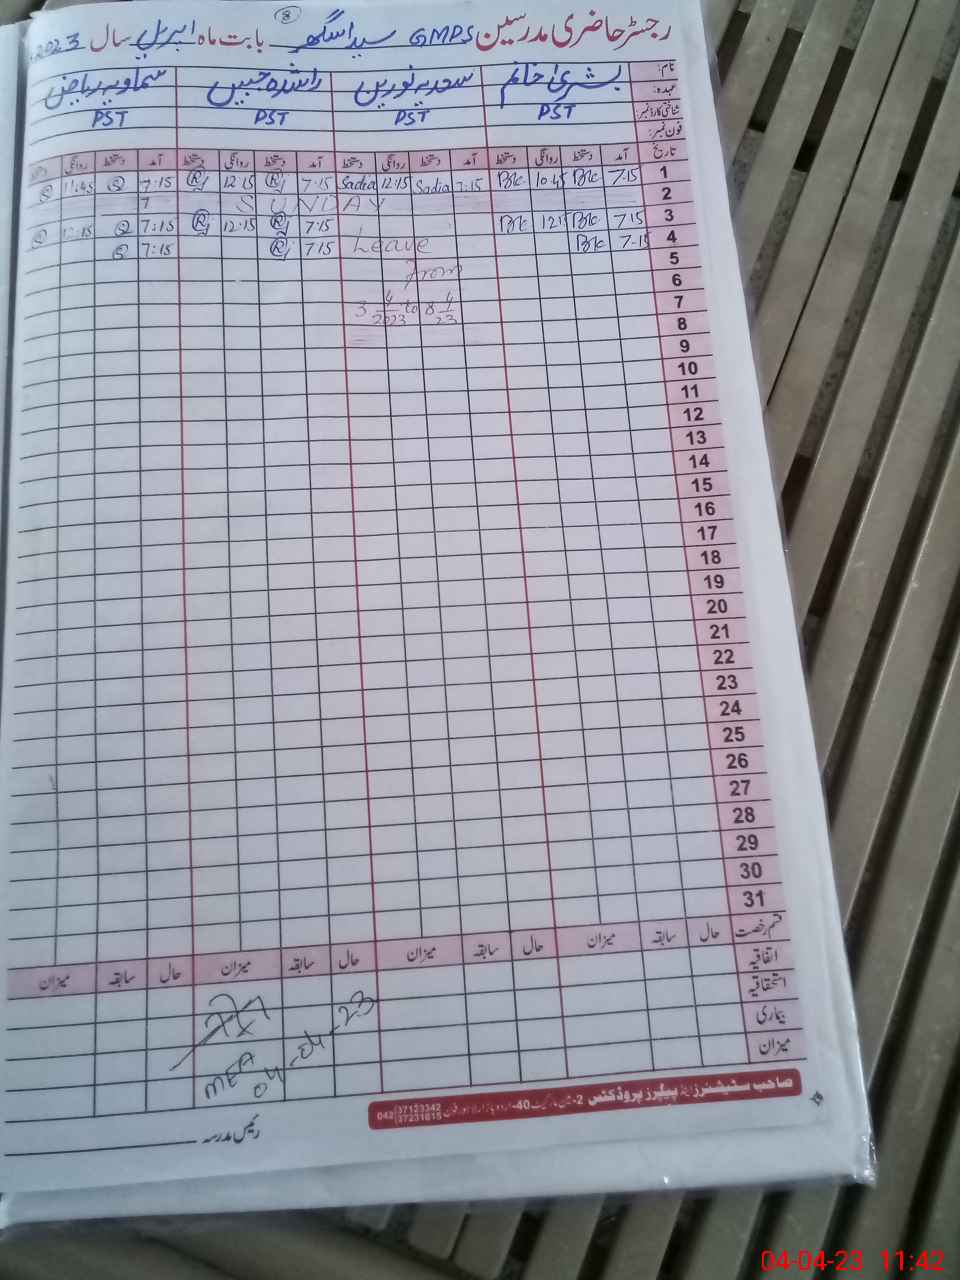 8
رجسٹر حاضری مدرسین GMPS سیداسگھر بابت ماہ اپریل سال 2023
نام: بشریٰ خانم سعدیہ نورین راشدہ جبیں سماویہ ریاض
عہدہ: PST PST PST PST
شناختی کارڈ نمبر:
فون نمبر:
تاریخ آمد دستخط روانگی دستخط آمد دستخط روانگی دستخط آمد دستخط روانگی دستخط آمد دستخط روانگی دستخط
1 7.15 10.45 7:15 Sadia 12:15 Sadia 7.15 R 12.15 R 7.15 S 11:45 S
2 SUNDAY
3 7.15 12.15 7.15 R 12.15 R 7:15 S 12:15 S
4 7.15 Leave 7.15 R 7:15 S
5 from
6
7 3 4/2023 to 8 4/23
8
9
10
11
12
13
14
15
16
17
18
19
20
21
22
23
24
25
26
27
28
29
30
31
قسم رخصت حال سابقہ میزان حال سابقہ میزان حال سابقہ میزان حال سابقہ میزان
اتفاقیہ
استحقاقیہ
بیماری
میزان
MEA
04-04-23
صاحب سٹیشنرز اینڈ پیپرز پروڈکٹس
042 37123342
37231615
رئیس مدرسہ
04-04-23 11:42